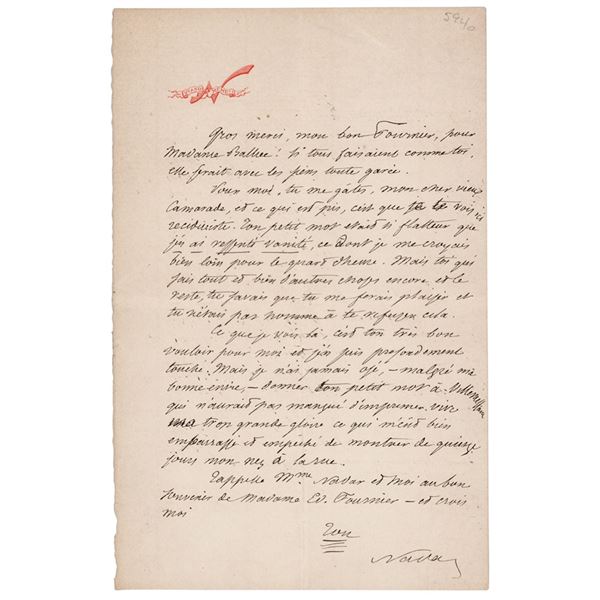 5940
Gros merci, mon bon Fournier, pour
Madame Ballue! Si tous faisaient comme toi,
elle ferait avec les péns toute garce.
Pour moi, tu me gâtes, mon cher vieux
Camarade, et ce qui est pis, c'est que je te vois ici
récidiviste. Ton petit mot était si flatteur que
j'en ai ressenti vanité, ce dont je me croyais
bien loin pour le quard d'heure. Mais toi qui
sais tout et bien d'autres choses encore et le
reste, tu savais que tu me ferais plaisir et
tu n'étais pas homme à te refuser cela.
Ce que je vois là, c'est ton très bon
vouloir pour moi et j'en suis profondément
touché. Mais je n'ai jamais osé, – malgré ma
bonne envie, – donner ton petit mot à Villemessant
qui n'aurait pas manqué d'imprimer vive
trop grande gloire ce qui m'eût bien
embarrassé et empêché de montrer de quinze
jours mon nez à la rue.
Rappelle Mme Nadar et moi au bon
souvenir de Madame Ed. Fournier – et crois
moi
Ton
Nadar